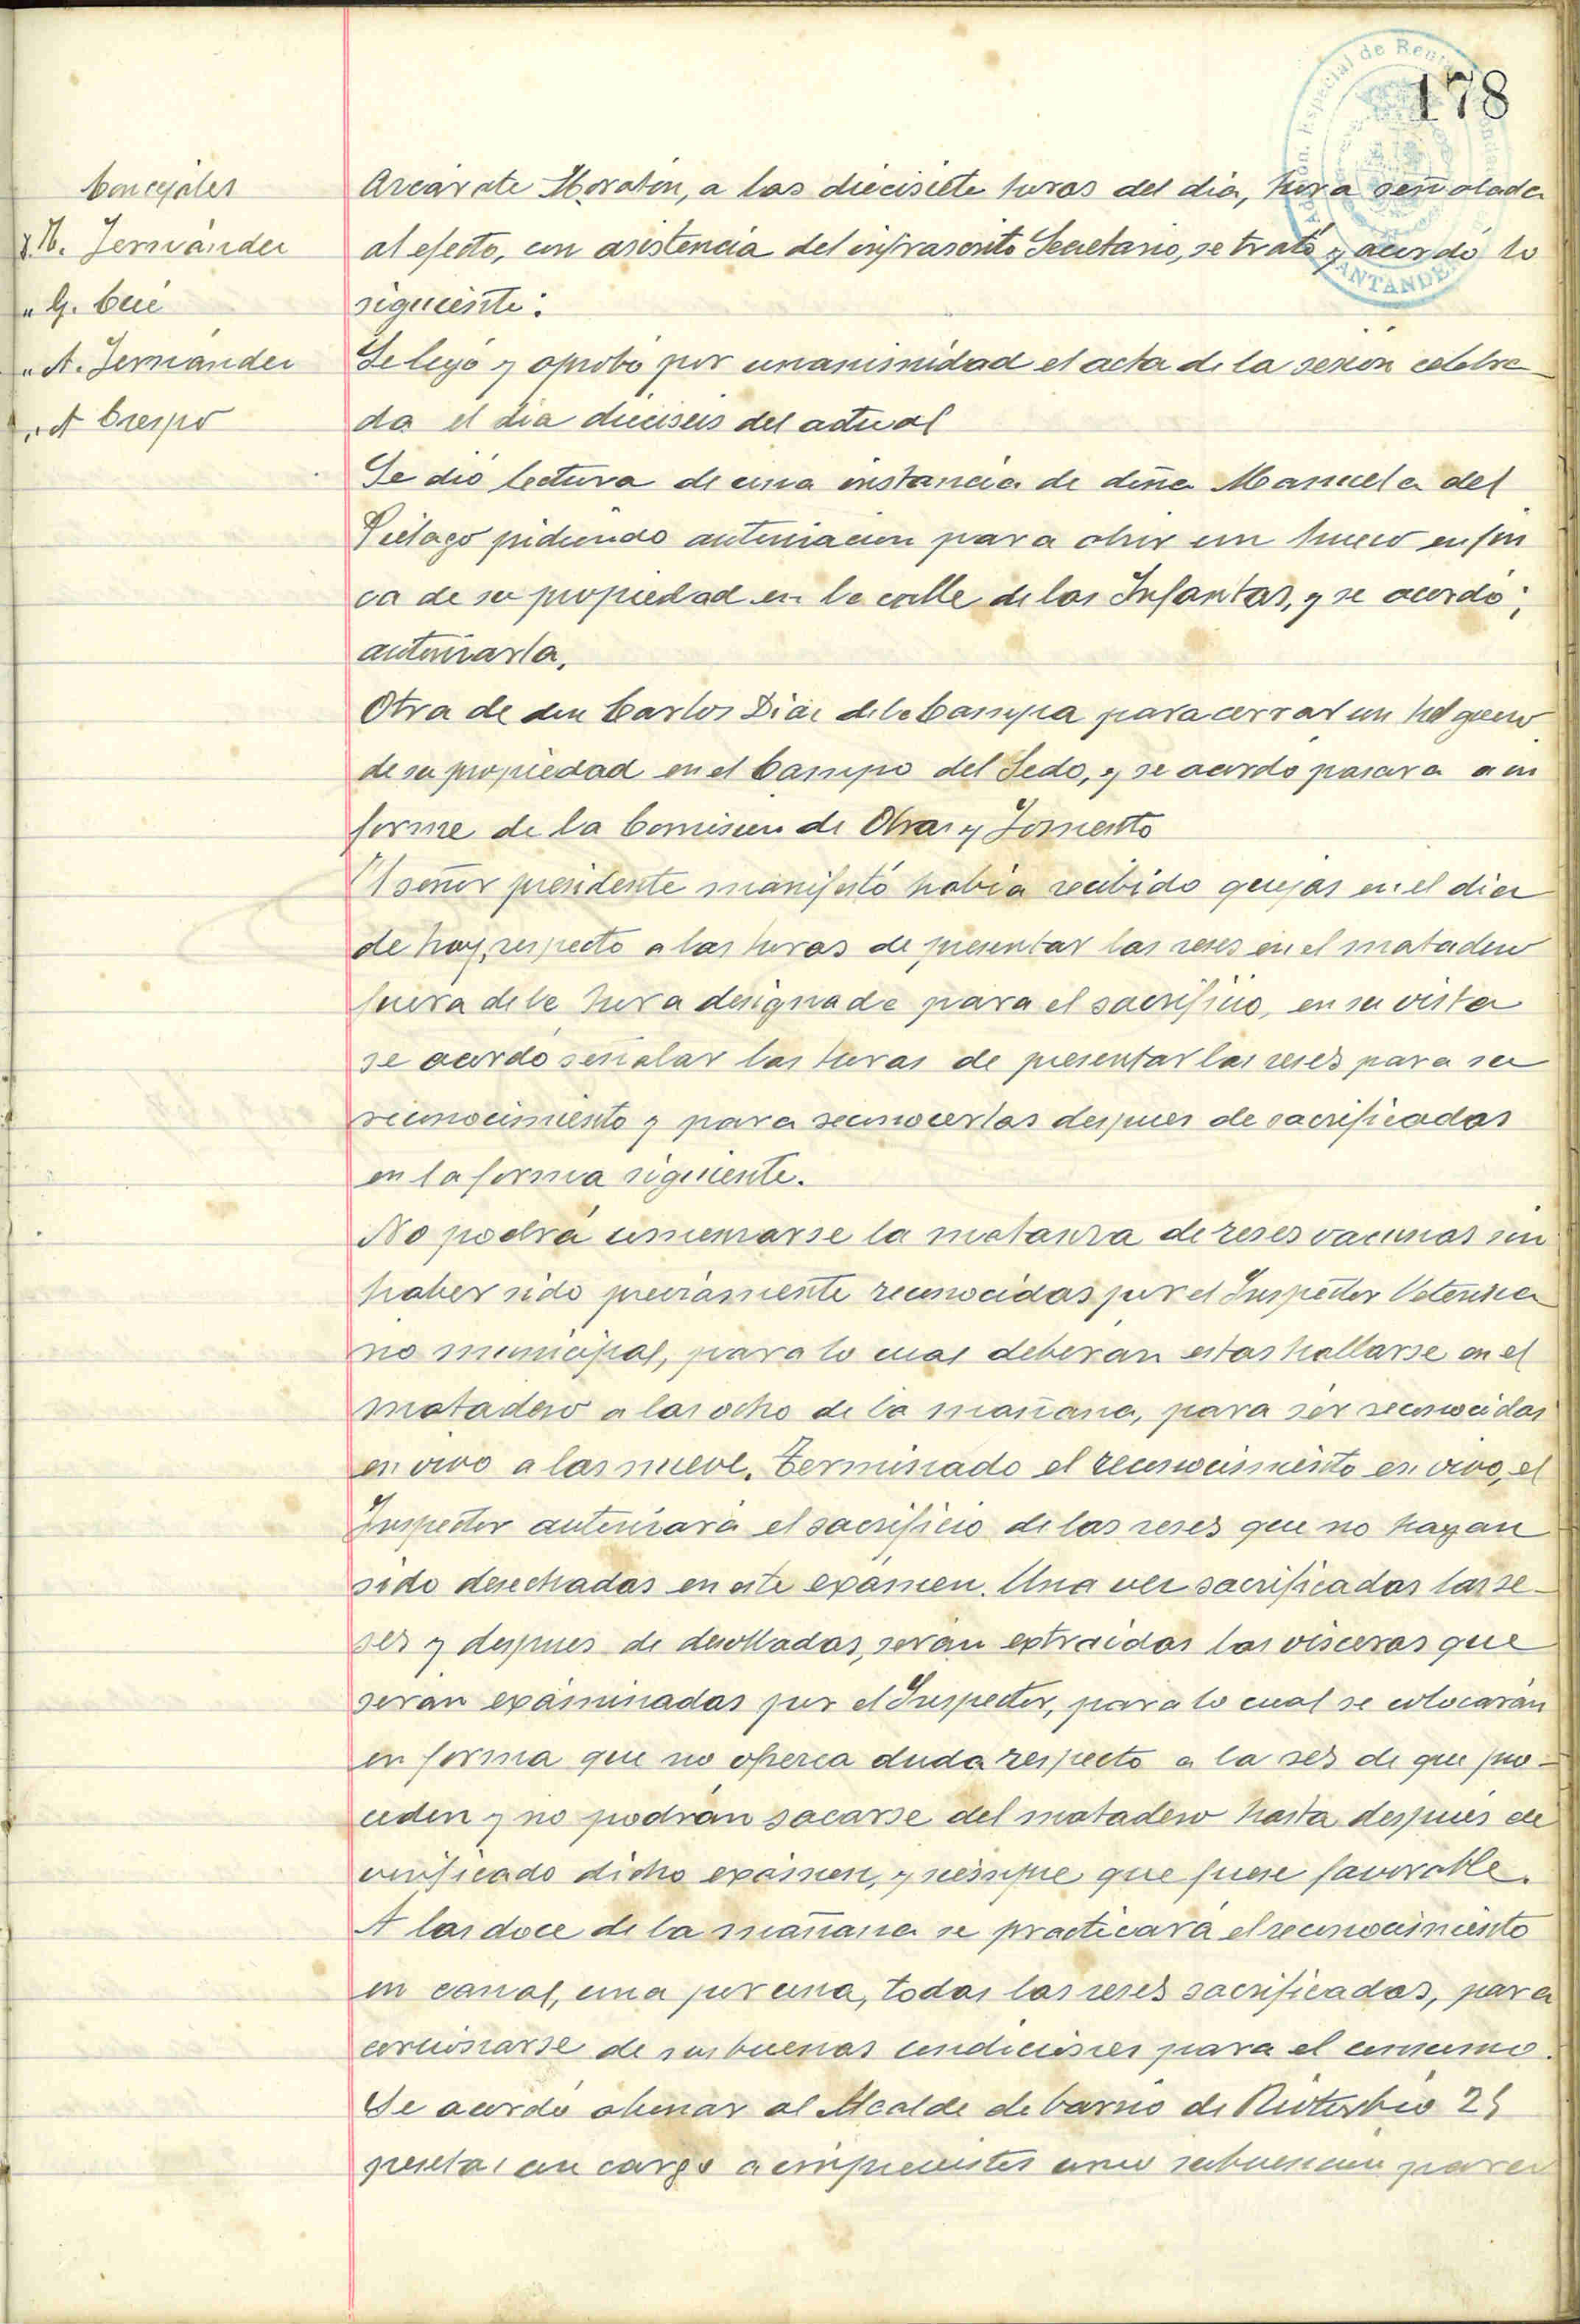 178
Admon. Especial de Rentas
SANTANDER
Concejales
D. N. Fernández
" G. Cué
" A. Fernández
" A Crespo
Azcárate Moratón, a las diecisiete horas del dia, hora señalada
al efecto, con asistencia del infrascrito Secretario, se trató y acordó lo
siguiente:
Se leyó y aprobó por unanimidad el acta de la sesión celebra-
da el dia dieciseis del actual
Se dió lectura de una instancia de doña Manuela del
Piélago pidiendo autorizacion para abrir un hueco en fin
ca de su propiedad en la calle de las Infantas, y se acordó;
autorizarla.
Otra de don Carlos Diaz de la Campa para cerrar un helguero
de su propiedad en el Campo del Sedo, y se acordó pasara a in
forme de la Comision de Obras y Fomento
El señor presidente manifestó habia recibido quejas en el dia
de hoy, respecto a las horas de presentar las reses en el matadero
fuera de la hora designada para el sacrificio, en su vista
se acordó señalar las horas de presentar las reses para su
reconocimiento y para reconocerlas despues de sacrificadas
en la forma siguiente.
No podrá comenzarse la matanza de reses vacunas sin
haber sido previamente reconocidas por el Inspector Veterina
rio municipal, para lo cual deberán estas hallarse en el
matadero a las ocho de la mañana, para ser reconocidas
en vivo a las nueve. Terminado el reconocimiento en vivo, el
Inspector autorizará el sacrificio de las reses que no hayan
sido desechadas en este exámen. Una vez sacrificadas las re-
ses y despues de desolladas, serán extraidas las visceras que
serán exáminadas por el Inspector, para lo cual se colocarán
en forma que no ofrezca duda respecto a la res de que pro-
ceden y no podrán sacarse del matadero hasta después de
verificado dicho exámen, y siempre que fuese favorable.
A las doce de la mañana se practicará el reconocimiento
en canal, una por una, todas las reses sacrificadas, para
cercionarse de sus buenas condiciones para el consumo.
Se acordó abonar al Alcalde de barrio de Rioturbio 25
pesetas con cargo a imprevistos como subvencion para